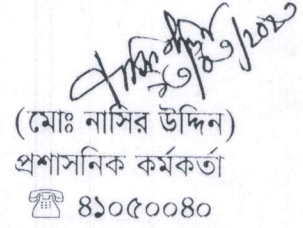 (মোঃ নাসির উদ্দিন)
প্রশাসনিক কর্মকর্তা
☎ ৪১০৫০০৪০